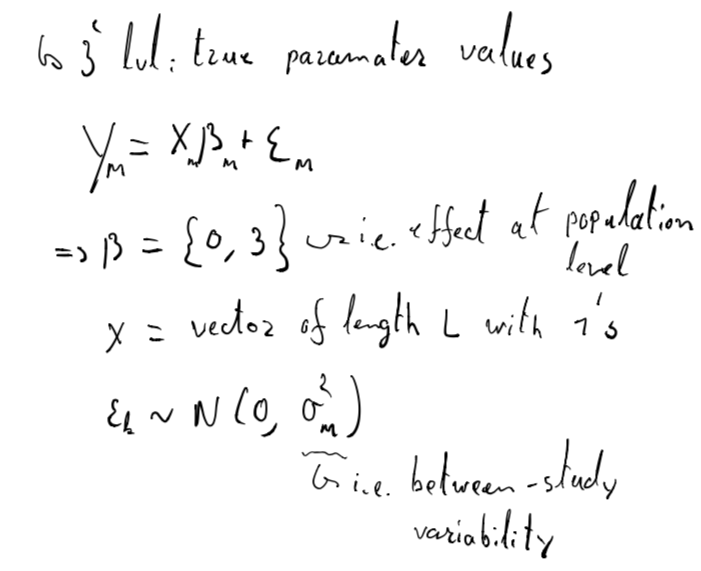 ↳ 3ᵉ lvl: true paramater values
Y_M = X_M β_M + ε_M
=> β = {0, 3} ↳ i.e. effect at population
level
X = vector of length L with 1's
ε_k ~ N(0, σ²_M)
↳ i.e. between-study
variability